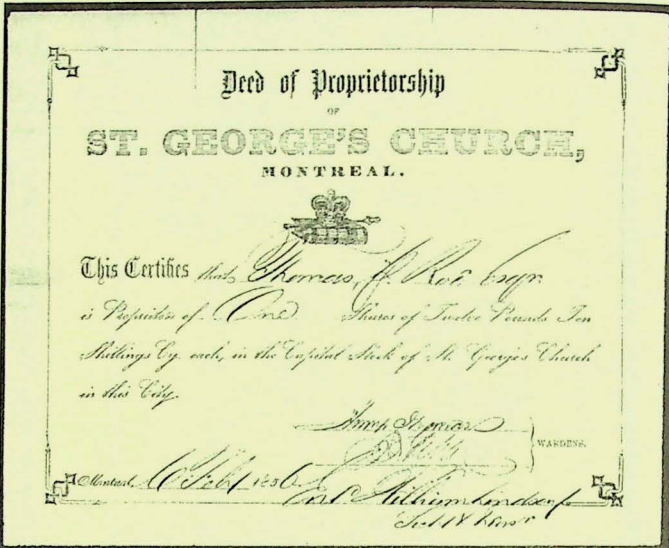 Deed of Proprietorship
OF
ST. GEORGE'S CHURCH,
MONTREAL.
This Certifies that Thomas Esqr
is Proprietor of One Shares of Twelve Pounds Ten
Shillings Cy each, in the Capital Stock of St. George's Church
in this City
WARDENS.
Montreal 6 Feb
William Lindsay